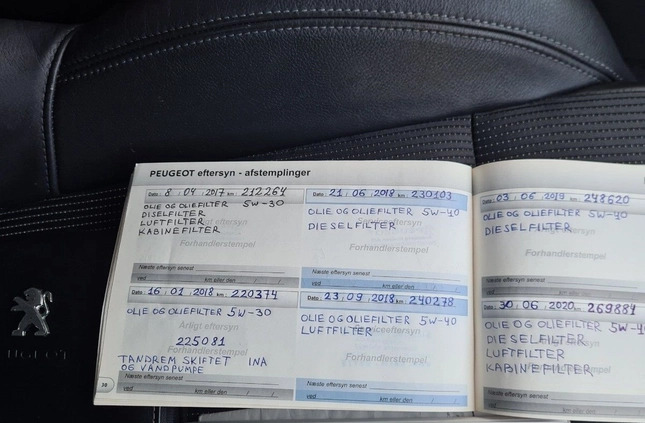 PEUGEOT eftersyn - afstemplinger
Dato: 8 / 04 / 2017 km: 212264
OLIE OG OLIEFILTER 5W-30
DISELFILTER
LUFTFILTER
KABINEFILTER
Forhandlerstempel
Næste eftersyn senest
ved km eller den / /
Dato: 16 / 01 / 2018 km: 220374
OLIE OG OLIEFILTER 5W-30
Årligt eftersyn
225081
Forhandlerstempel
TANDREM SKIFTET INA
OG VANDPUMPE
Næste eftersyn senest
ved km eller den / /
38
Dato: 21 / 06 / 2018 km: 230103
OLIE OG OLIEFILTER 5W-40
DIESELFILTER
Forhandlerstempel
Næste eftersyn senest
ved km eller den / /
Dato: 23 / 09 / 2018 km 240278
OLIE OG OLIEFILTER 5W-40
LUFTFILTER
Forhandlerstempel
Næste eftersyn senest
ved km eller den / /
Dato: 03 / 06 / 2019 km 248620
OLIE OG OLIEFILTER 5W-40
DIESELFILTER
Forhandlerstempel
Næste eftersyn senest
ved km eller den / /
Dato: 30 / 06 / 2020 km 269881
OLIE OG OLIEFILTER 5W-4
DIESELFILTER
LUFTFILTER
KABINEFILTER
Næste eftersyn senest
ved km eller den / /